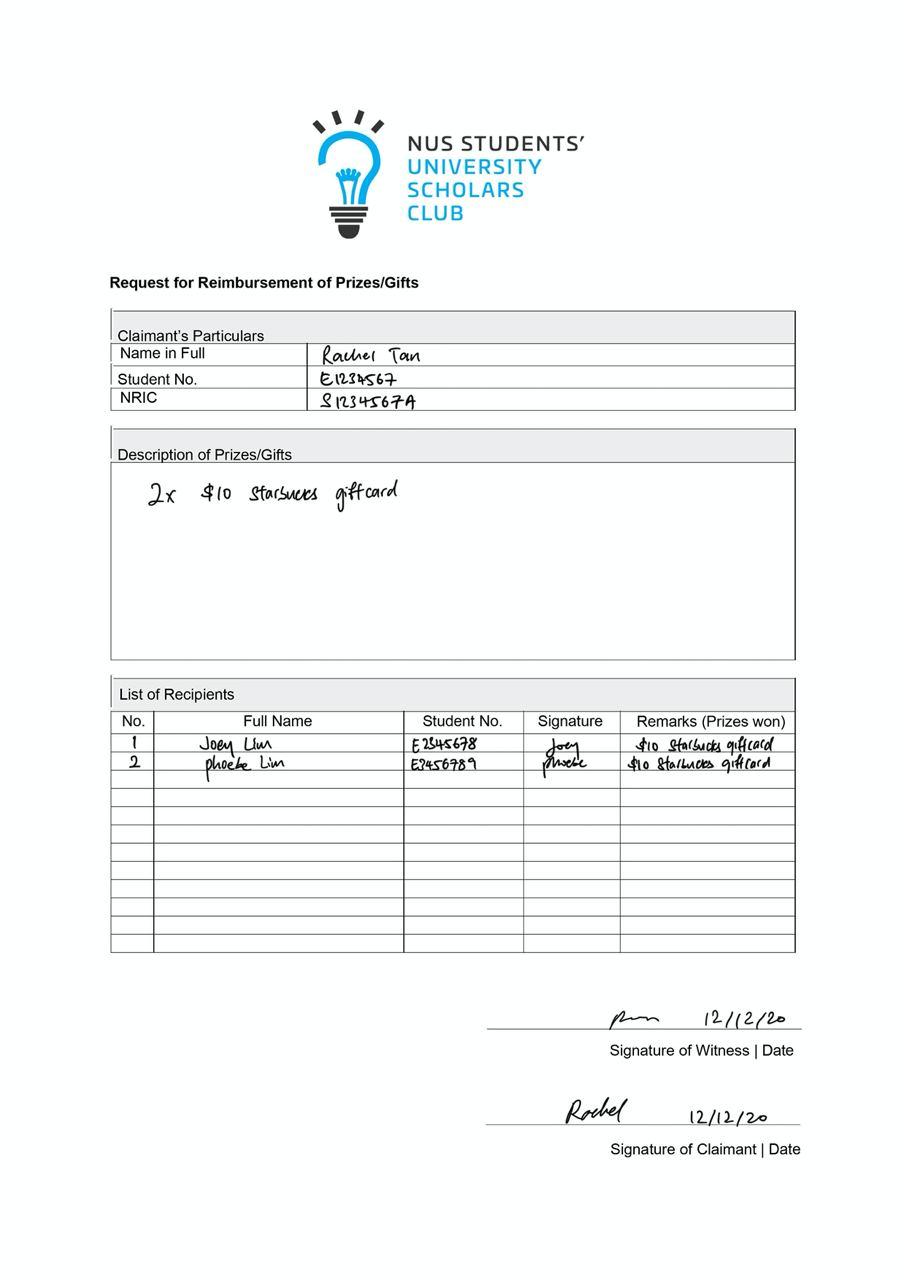 NUS STUDENTS'
UNIVERSITY
SCHOLARS
CLUB
Request for Reimbursement of Prizes/Gifts
Claimant's Particulars
Name in Full Rachel Tan
Student No. E1234567
NRIC S1234567A
Description of Prizes/Gifts
2x $10 Starbucks giftcard
List of Recipients
No. Full Name Student No. Signature Remarks (Prizes won)
1 Joey Lim E2345678 Joey $10 Starbucks giftcard
2 phoebe Lim E3456789 phoebe $10 Starbucks giftcard
12/12/20
Signature of Witness | Date
Rachel 12/12/20
Signature of Claimant | Date